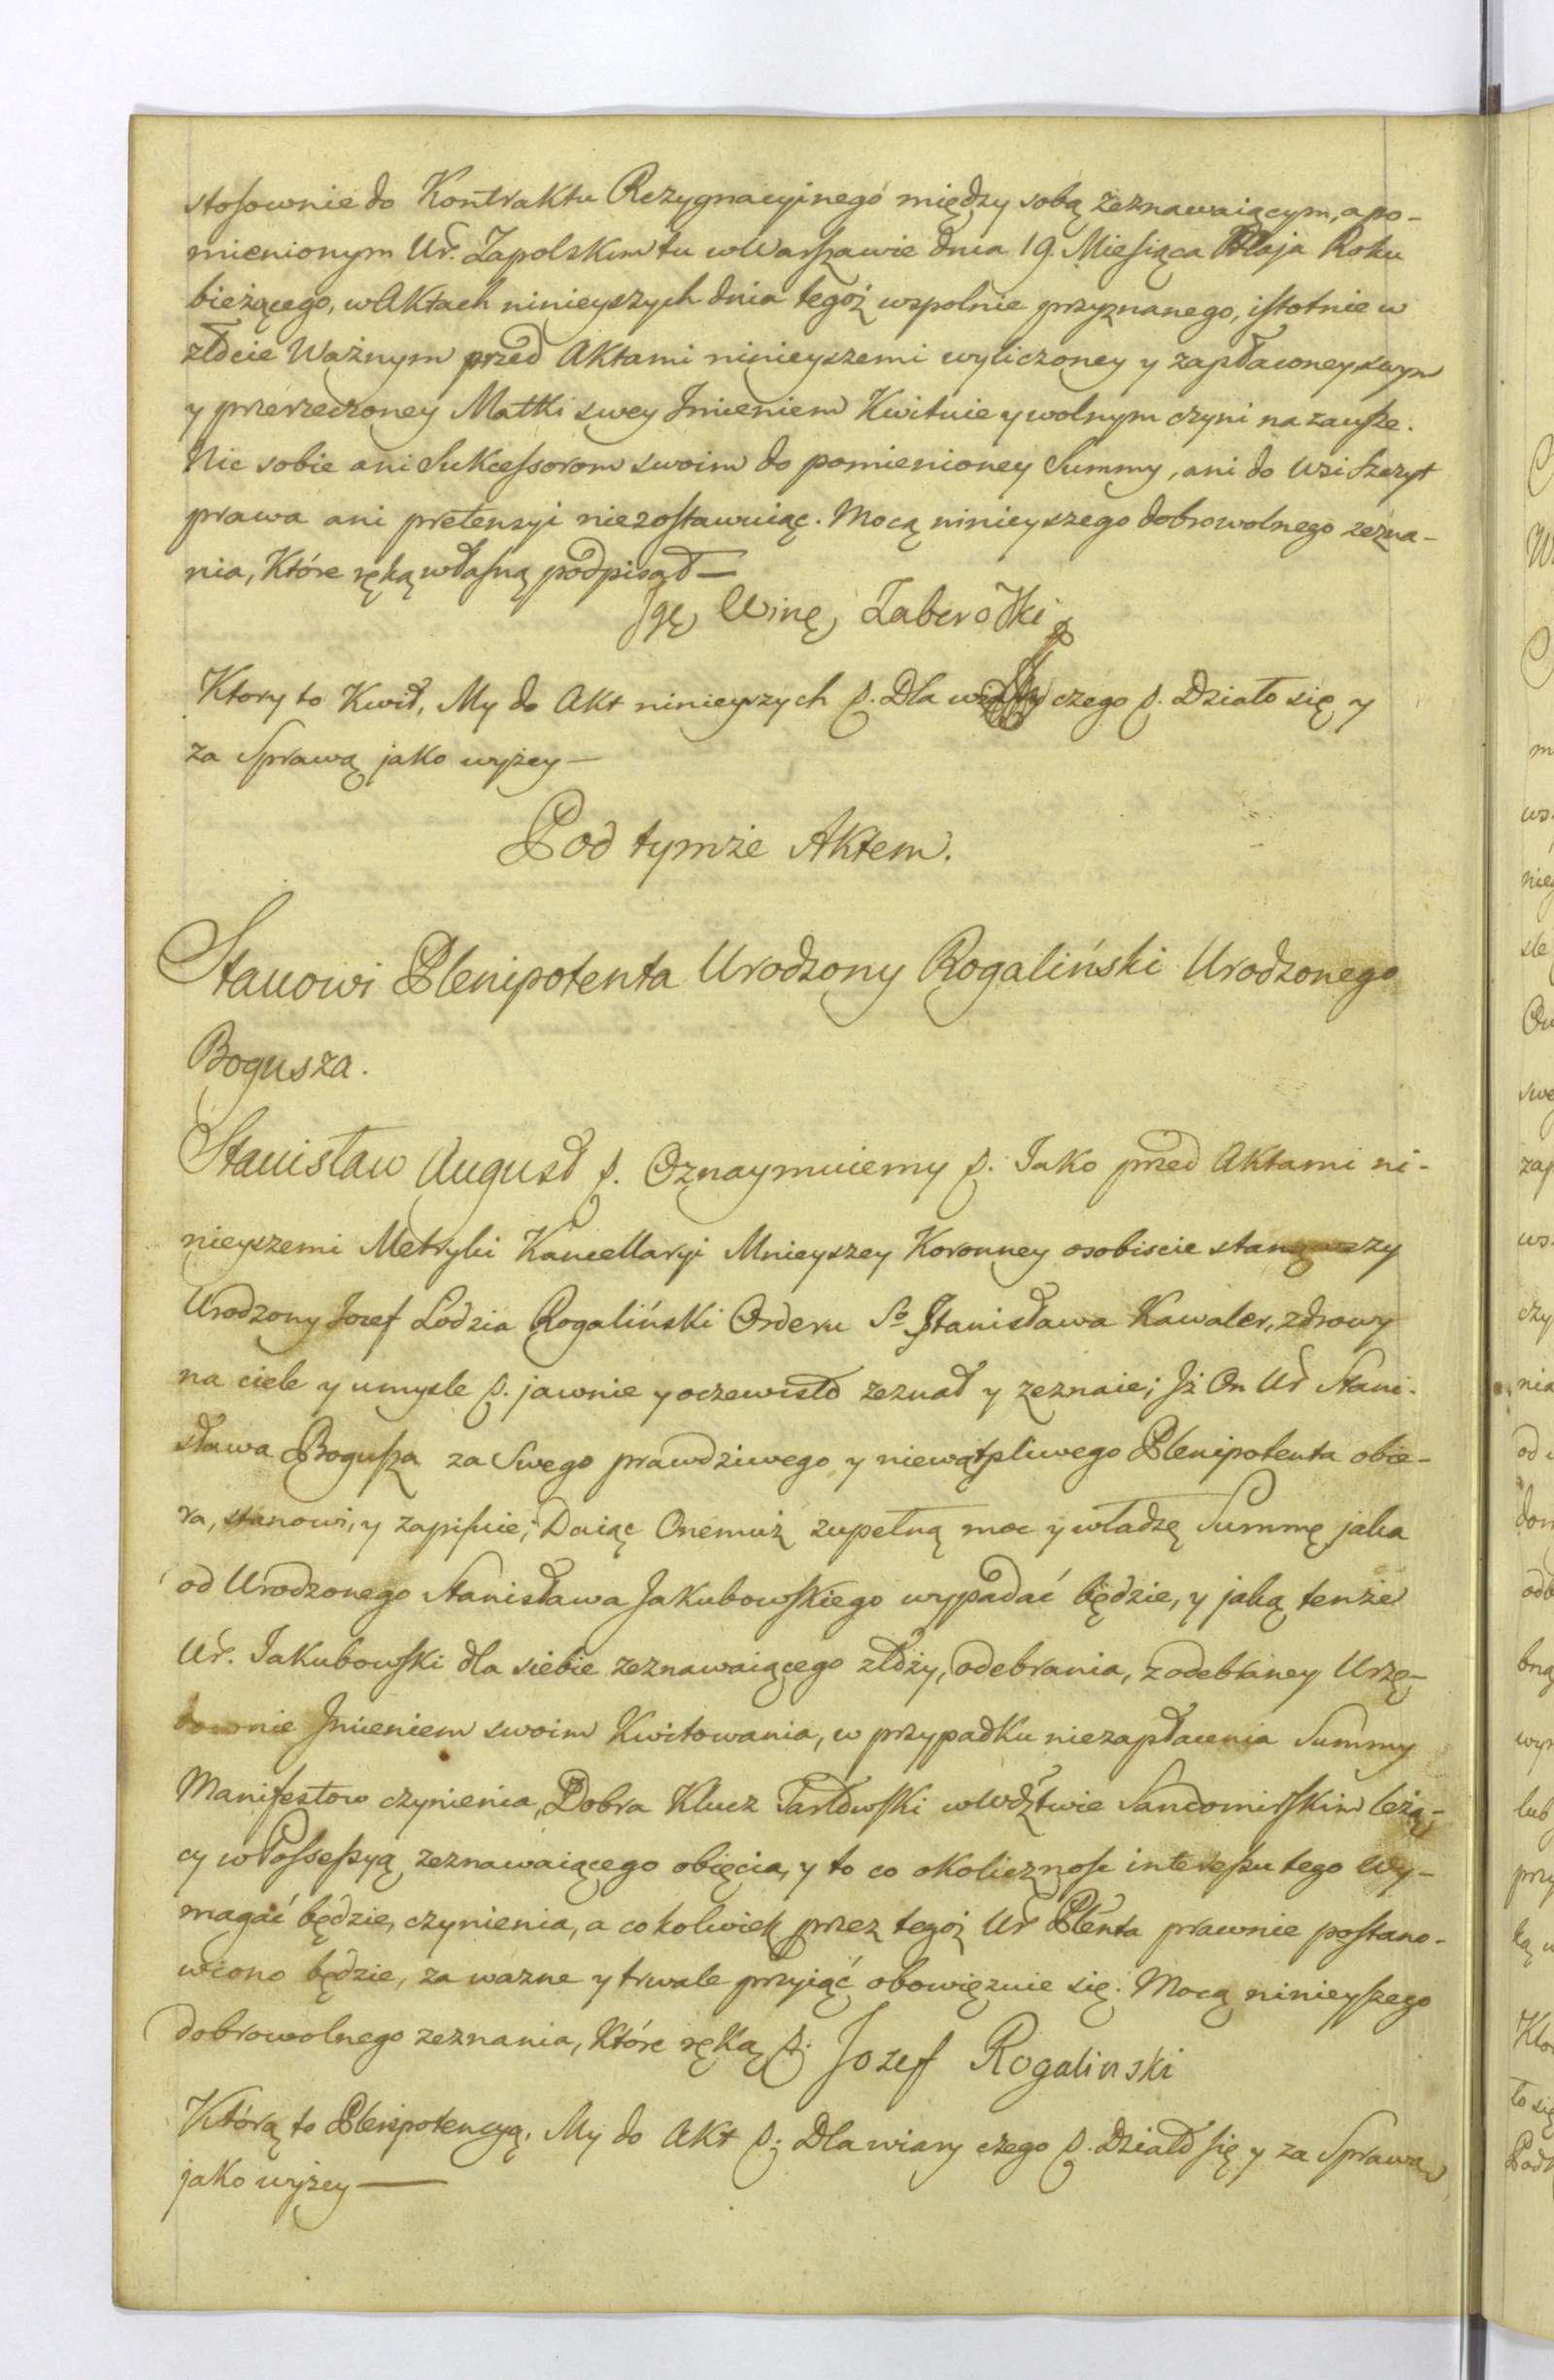 stosownie do Kontraktu Rezygnacyjnego między sobą zeznawaiącym, a po-
mienionym Ur. Zapolskim tu w Warszawie dnia 19. Miesiąca Maja Roku
bieżącego, w Aktach ninieyszych dnia tegoż wspolnie przyznanego, istotnie w
złocie Ważnym przed Aktami ninieyszemi wyliczoney y zapłaconey swym
y przerzeczoney Matki swey Jmieniem Kwituie y wolnym czyni na zausze.
Nic sobie ani Sukcessorom swoim do pomienioney Summy, ani do Wsi Szczyt
prawa ani pretensyi niezostawuiąc. Mocą ninieyszego dobrowolnego zezna-
nia, Które ręką własną podpisał —
Zaberoski
Ktory to Kwit, My do Akt ninieyszych p. Dla wiary czego p. Działo się y
za Sprawą jako wyżey —
Pod tymże Aktem.
Stanowi Plenipotenta Urodzony Rogaliński Urodzonego
Bogusza.
Stanisław August p. Oznaymuiemy p. Jako przed Aktami ni-
nieyszemi Metryki Kancellaryi Mnieyszey Koronney osobiscie stanąwszy
Urodzony Jozef Lodzia Rogaliński Orderu So Stanisława Kawaler, zdrowy
na ciele y umysle p. jawnie y oczewisto zeznał y zeznaie; Jż On Ur Stani-
sława Bogusza za Swego prawdziwego y niewątpliwego Plenipotenta obie-
ra, stanowi, y zapisuie; Daiąc Onemuż zupełną moc y władzę Summę jaka
od Urodzonego Stanisława Jakubowskiego wypadać będzie, y jaką tenże
Ur. Jakubowski dla siebie zeznawaiącego złoży, odebrania, z odebraney Urzę-
downie Jmieniem swoim Kwitowania, w przypadku niezapłacenia Summy
Manifestow czynienia, Dobra Klucz Tarłowski w Wdztwie Sandomirskim leżą-
cy w Possessyą zeznawaiącego obięcia, y to co okoliczność interessu tego wy-
magać będzie, czynienia, a cokolwiek przez tegoż Ur Plenta prawnie postano-
wiono będzie, za wazne y trwałe przyiąć obowięzuie się. Mocą ninieyszego
dobrowolnego zeznania, Które ręką p. Jozef Rogalinski
Którą to Plenipotencyą, My do Akt p. Dla wiary czego p. Działo się y za Sprawą
jako wyżey —